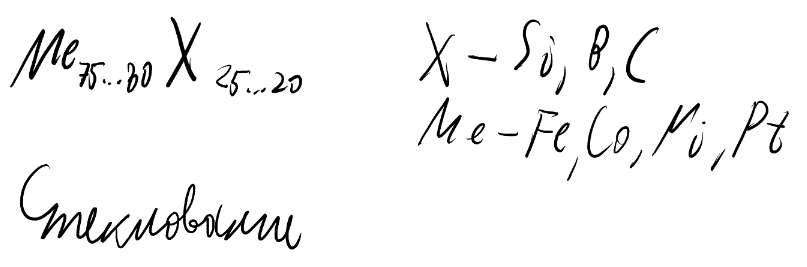 Me75...80 X 25...20
X – Si, B, C
Me – Fe, Co, Ni, Pt
Стеклование